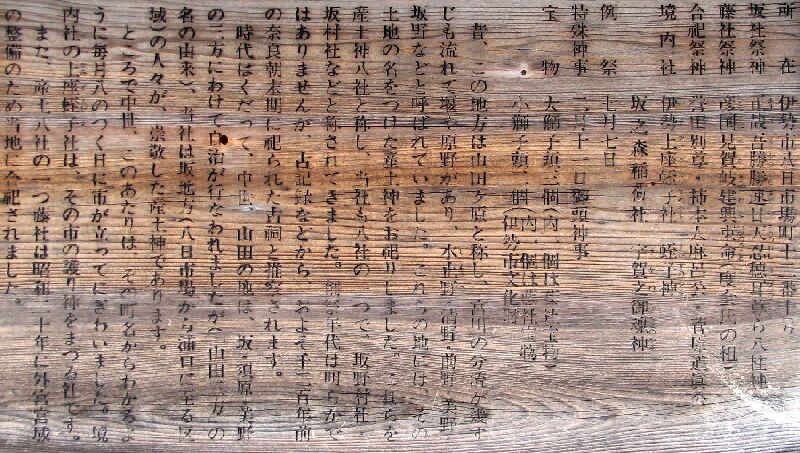 所在 伊勢市八日市場町十二番十号
坂社祭神 正哉吾勝勝速日天忍穂耳尊ら八柱神
藤社祭神 彦国見賀岐建與束命(度会氏の祖)
合祀祭神 誉田別尊・柿本人麻呂公・菅原道真公
境内社 伊勢上座蛭子社 蛭子神
坂之森稲荷社 宇賀之御魂神
例祭 七月七日
特殊神事 二月十一日獅頭神事
宝物 大獅子頭二個(内一個は藤社宝物)
小獅子頭一個(伊勢市文化財)
昔、この地方は山田ヶ原と称し、宮川の分流が幾す
じも流れて堰や原野があり、
坂野などと呼ばれていました。これらの地には、その
土地の名をつけた産土神をお祀りしました。これらを
産土神八社と称し、当社も八社の一つで、坂野村社・
坂村社などと称されてきました。創祭年代は明らかで
はありませんが、古記録などから、およそ千二百年前
の奈良朝末期に祀られた古祠と推察されます。
時代はくだって、中世、山田の地は、坂・須原・美野
の三方にわけて自治が行なわれましたが(山田三方の
名の由来)、当社は坂地方(八日市場から浦口に至る区
域)の人々が、崇敬した産土神であります。
ところで中世、このあたりは、その町名からわかるよ
うに毎月八のつく日に市が立ってにぎわいました。境
内社の上座蛭子社は、その市の護り神をまつる社です。
また、産土八社の一つ藤社は昭和 十年に外宮宮域
の整備のため当地に合祀されました。